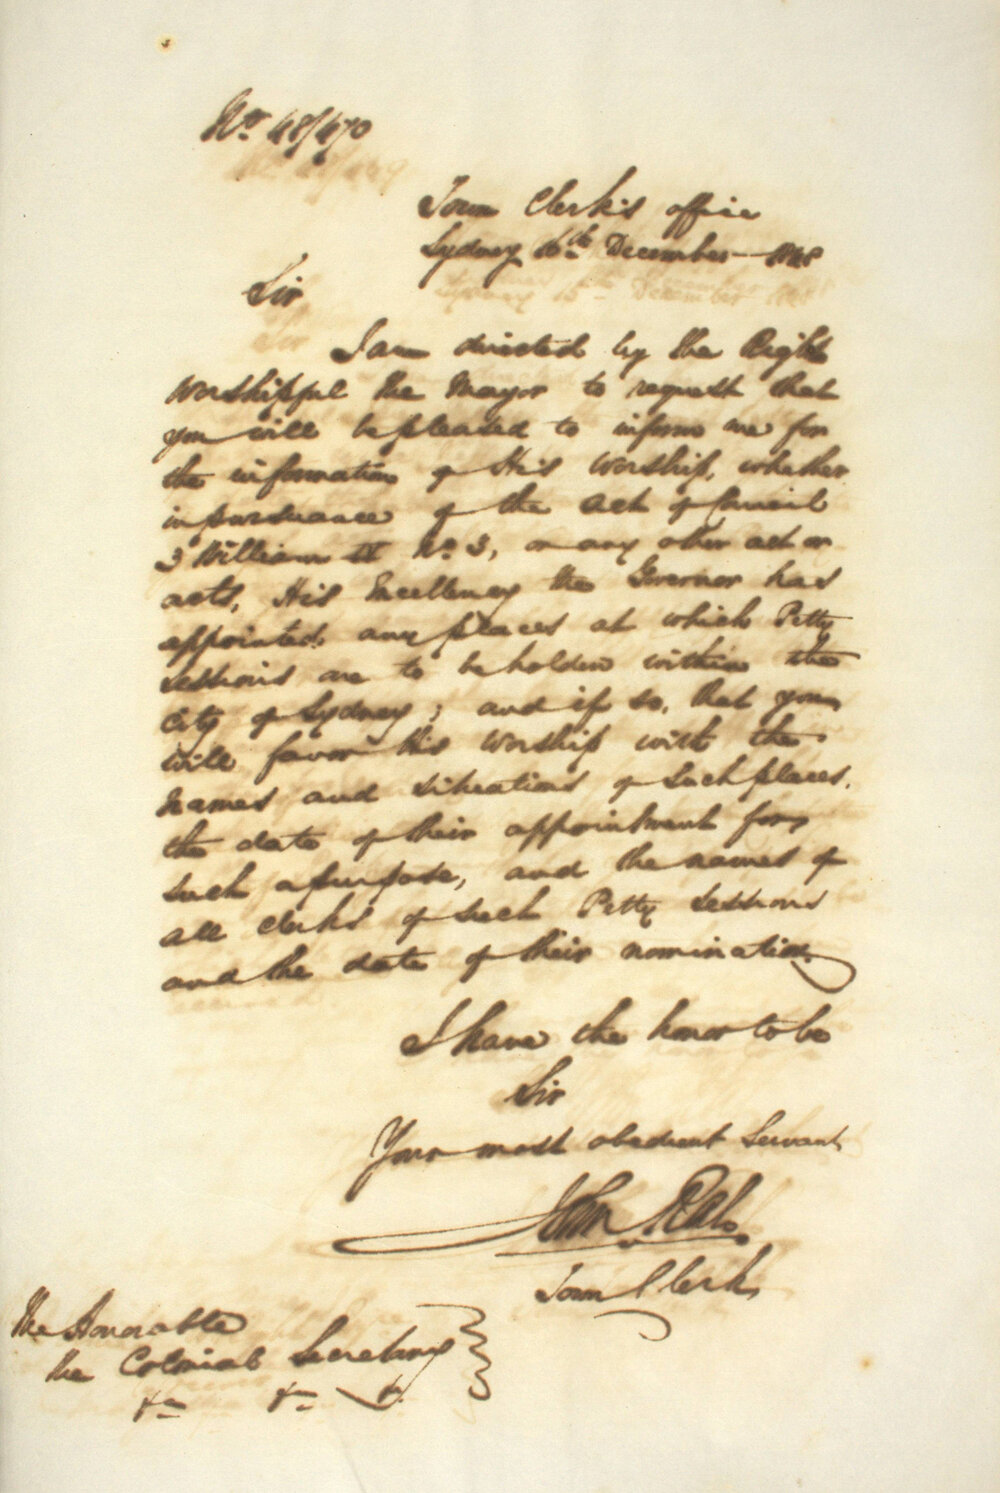 No. 48/470
Town Clerk's office
Sydney 16th December 1848
Sir
I am directed by the Right
Worshipful the Mayor to request that
you will be pleased to inform me for
the information of His Worship, whether
in pursuance of the Act of Council
3 William IV No. 3, or any other act or
acts, His Excellency the Governor has
appointed any places at which Petty
Sessions are to be holden within the
City of Sydney; and if so, that you
will favor His Worship with the
names and situations of such places,
the date of their appointment for
such a purpose, and the names of
all clerks of such Petty Sessions
and the date of their nomination.
I have the honor to be
Sir
Your most obedient Servant
John
Town Clerk
The Honorable
the Colonial Secretary
&c &c &c